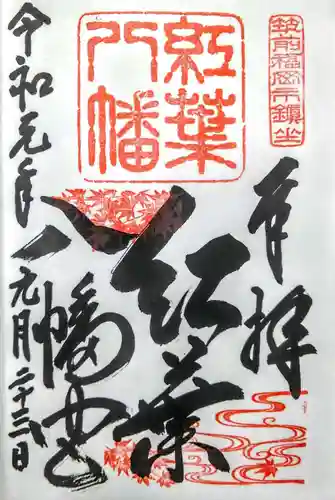 筑前福岡市鎮坐
奉拝
紅葉
八幡
紅葉
八幡宮
令和元年
九月二十三日